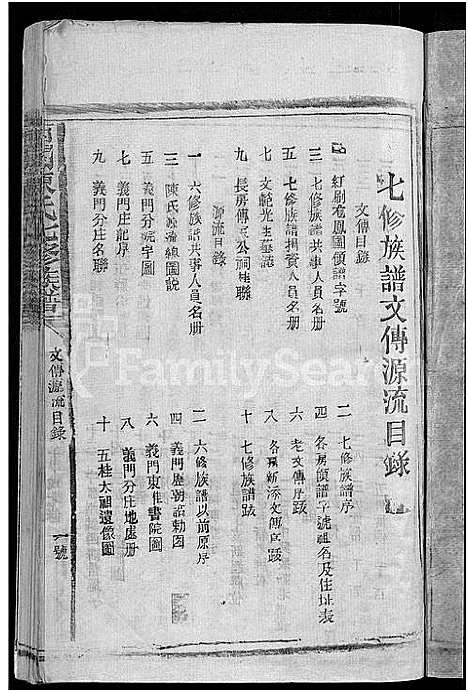 七修族譜文傳源流目錄
文傳目錄
一 紅刷龙鳳圖領譜字號
二 七修族譜序
三 七修族譜共事人員名册
四 各房領譜字號祖名及住址表
五 七修族譜捐資人員名册
六 老文傳序跋
七 文範光
八 各房新添文傳序跋
九 長房傳 公祠楹聯
十 七修族譜跋
源流目錄
一 六修族譜共事人員名册
二 六修族譜以前原序
三 陳氏源流線圖説
四 義門歷朝詔勅图
五 義門分院宇圖
六 義門東佳書院圖
七 義門庄記序
八 義門分庄地處册
九 義門分庄名聯
十 五桂太祖遺像圖
陳氏七修族譜
文傳源流目錄
一號
FamilySearch